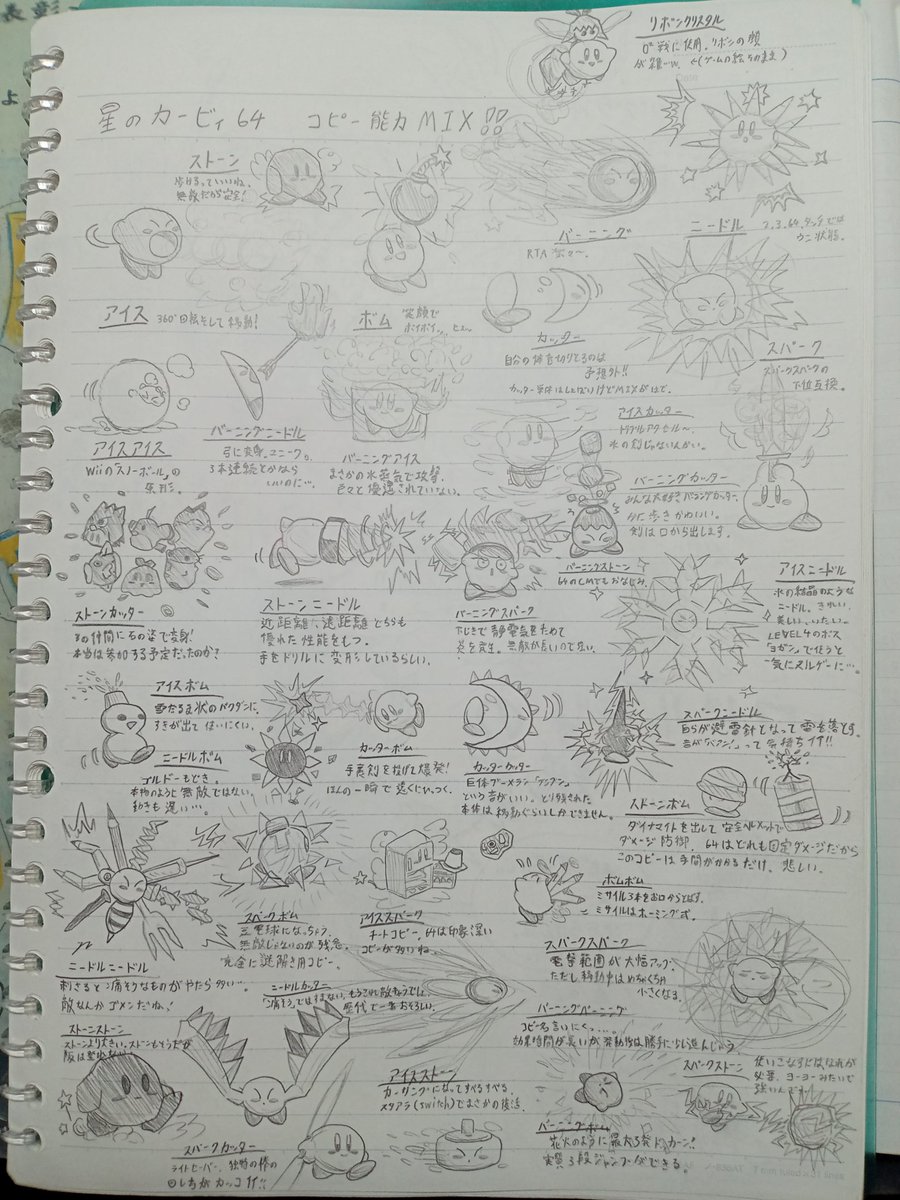 リボンクリスタル
0²戦に使用。リボンの顔
が雑ーw。←(ゲームの絵そのまま)
星のカービィ64 コピー能力MIX!!
ストーン
歩けるっていいね。
無敵だが安全!
バーニング
RTA
ニードル
2.3.64.タッチでは
ウニ状態。
アイス 360°回転そして移動!
ボム 笑顔で
ポイポイ
カッター
自分の体を切りとるのは
予想外!!
カッター単体はしょぼいけどMIXがほど。
スパーク
スパークスパークの
下位互換。
アイスアイス
Wiiの「スノーボール」の
原形。
バーニングニードル
弓に変身。ユニーク。
3本連続とかなら
いいのに…
バーニングアイス
まさかの水蒸気で攻撃。
色々と優遇されていない。
アイスカッター
トリプルアクセル〜。
氷の剣じゃないんかい。
バーニングカッター
みんな大好きバーニングカッター。
歩きかわいい。
剣は口から出します。
ストーンカッター
3の仲間に石の姿で変身!
本当は参加する予定だったのか?
ストーンニードル
近距離、遠距離どちらも
優れた性能をもつ。
手をドリルに変形しているらしい。
バーニングスパーク
下じきで静電気をためて
炎を発生。無敵が長いので強い。
バーニングストーン
64のCMでもおなじみ。
アイスニードル
氷の結晶のような
ニードル。きれい、
美しい、いたい…
LEVEL4のボス
「ヨガン」で使うと
一気にヌルゲーに…
アイスボム
雪だるま状のバクダンに。
すきが出て使いにくい。
ニードルボム
ゴルドーもどき。
本物のように無敵ではない。
動きも遅い…
カッターボム
手裏剣を投げて爆発!
ほんの一瞬で遠くにひっつく。
カッターカッター
巨体ブーメラン「ブンブン」
という音がいい。とり残された
本体は移動ぐらいしかできません。
スパークニードル
自らが避雷針となって雷を落とす。
音が「バァン!」って気持ちイイ!!
ストーンボム
ダイナマイトを出して安全ヘルメットで
ダメージ防御。64はどれも固定ダメージだから
このコピーは手間がかかるだけ。悲しい。
スパークボム
豆電球になっちゃう。
無敵じゃないのが残念。
完全に謎解き用コピー。
アイススパーク
チートコピー。64は印象深い
コピーが多いね。
ボムボム
ミサイル3本をお口からとばす。
ミサイルはホーミング式。
スパークスパーク
電撃範囲が大幅アップ。
ただし移動中はめちゃくちゃ
小さくなる。
ニードルニードル
刺さると痛そうなものがやたら多い…。
敵なんかゴメンだね!
ニードルカッター
「痛そう」ではすまない。もうこれ敵キャラでしょ。
歴代で一番おそろしい。
バーニングバーニング
コピー名言いにくっ…。
効果時間が長いが発動後は勝手に少し進んじゃう。
ストーンストーン
ストーンより大きい。ストーンもそうだが
坂は
アイスストーン
カーリングになってすべるすべる
スタアラ(switch)でまさかの復活。
スパークストーン
使いこなすにはなれが
必要。ヨーヨーみたいで
強いんです
バーニングボム
花火のように最大3発ドッカーン!
実質3段ジャンプができる。
スパークカッター
ライトセーバー。独特の棒の
回し方がカッコイイ!!